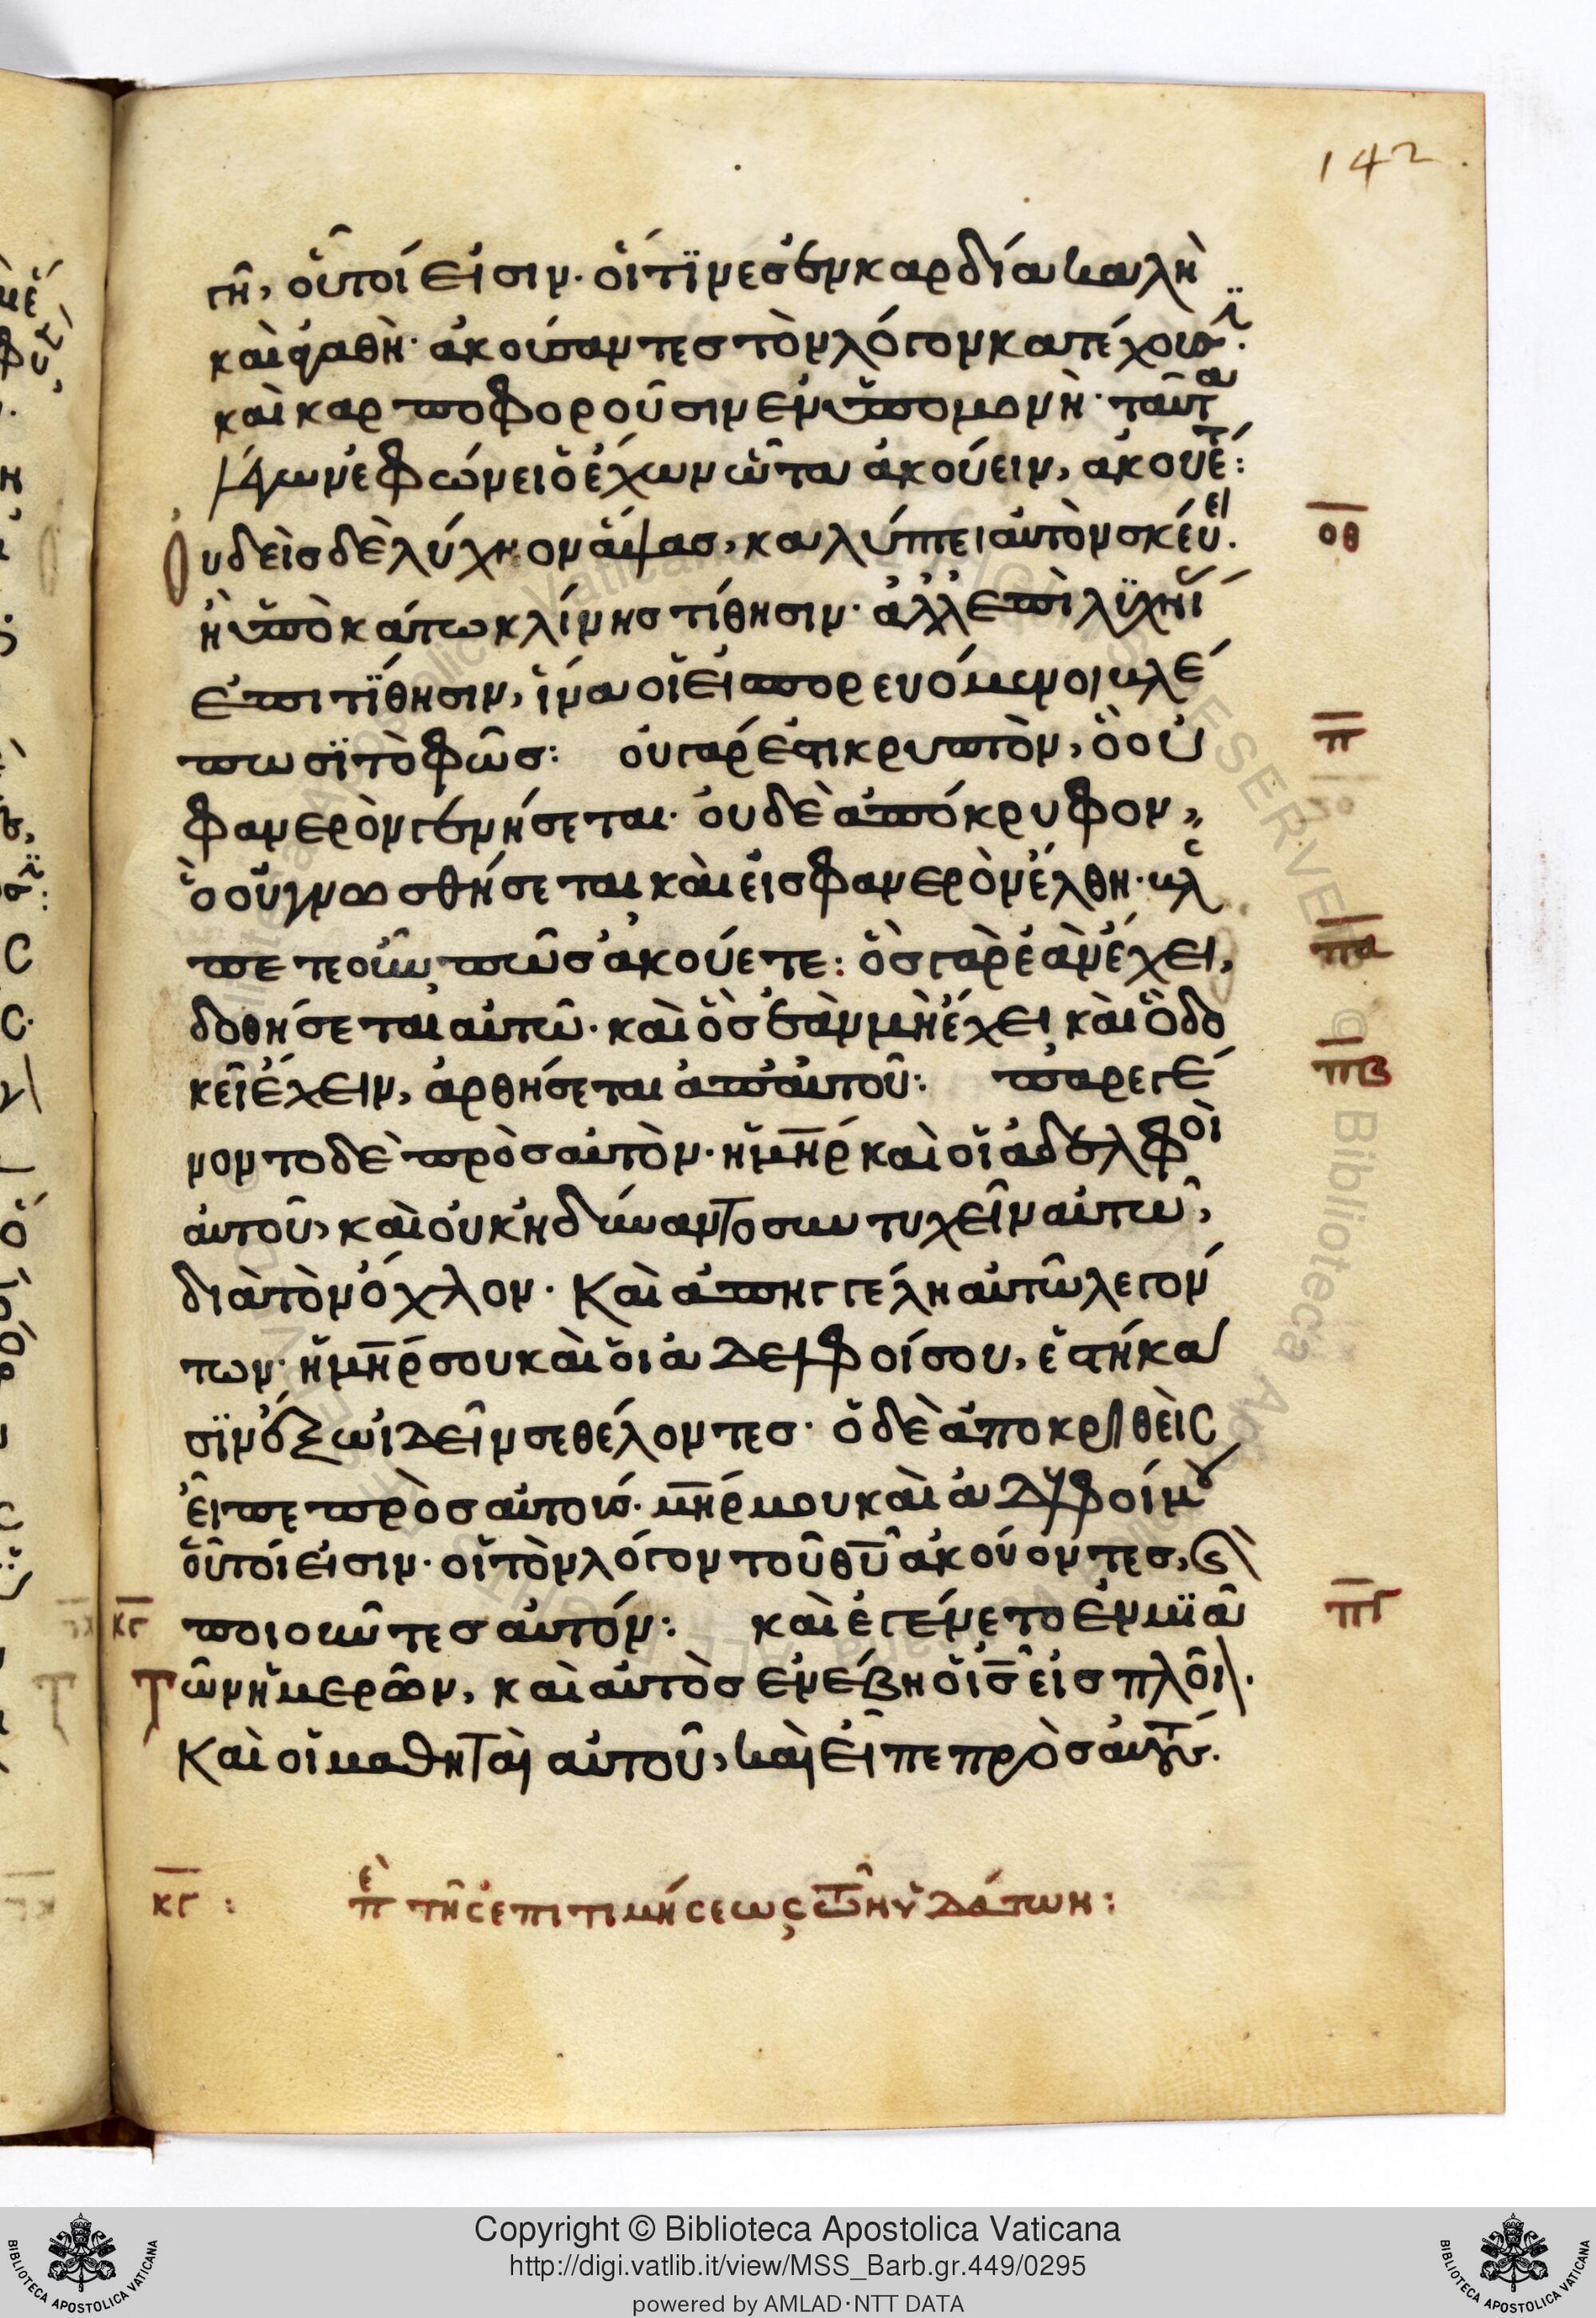 142
γῆ, οὗτοί εἰσιν· οἵτϊνες ἐν καρδία καλὴ
καὶ ἀγαθὴ· ἀκούσαντες τὸν λόγον κατέχουσϊ·
καὶ καρποφοροῦσιν ἐν ὑπομονὴ· ταῦτα
λέγων ἐφώνει ὁ ἔχων ὦτα ἀκούειν, ἀκουέτ:
οθ
Ουδεὶς δὲ λύχνον ἅψας, καλύπτει αὐτὸν σκέυει·
ἢ ὑποκάτω κλίνης τίθησιν· ἀλλ ἐπὶ λϊχνί
ἐπιτϊθησιν, ἵνα οἱ εἰσπορευόμενοι βλέ
π
πωσϊ τὸ φῶς: οὐ γάρ ἐστι κρυπτὸν, ὃ οὐ
φανερὸν γενήσεται· ὀυδὲ ἀπόκρυφον,
ὃ οὐ γνωσθήσεται καὶ εἰς φανερὸν ἔλθη· βλέ
πα
πετε οὖν πῶς ἀκούετε: ὃς γὰρ ἐὰν ἔχει,
δοθήσεται αὐτῶ· καὶ ὃς ἐὰν μὴ ἔχει καὶ ὃ δο
πβ
κεῖ ἔχειν, ἀρθήσεται ἀπ αὐτοῦ: παρεγέ
νοντο δὲ πρὸς αὐτὸν· ἡ μηρ καὶ οἱ ἀδελφοὶ
αὐτοῦ, καὶ οὐκ ἠδύναντο συντυχεῖν αὐτῶ,
διὰ τὸν ὄχλον· Καὶ ἀπηγγέλη αὐτῶ λεγόν
των· ἡ μηρ σου καὶ ὁι ἀδελφοί σου, ἑστήκα
σϊν ἔξω ἰδεῖν σε θέλοντες· ὁ δὲ ἀποκριθεὶς
εἶπε πρὸς αὐτούς· μηρ μου καὶ ἀδελφοί μου
οὗτοί εἰσιν· οἱ τὸν λόγον τοῦ θυ ἀκούοντες, καὶ
πγ
κγ ποιοῦντες αὐτόν: καὶ ἐγένετο ἐν μϊᾶ
Τῶν ἡμερῶν, καὶ αὐτὸς ἐνέβη ὁ ις εἰς πλοῖον·
Καὶ οἱ μαθηταὶ αὐτοῦ, καὶ εἶπε πρὸς αὐτούς·
κγ: πε τῆς ἐπιτιμήσεως τῶν ὑδάτων:
Copyright © Biblioteca Apostolica Vaticana
http://digi.vatlib.it/view/MSS_Barb.gr.449/0295
powered by AMLAD·NTT DATA
BIBLIOTECA APOSTOLICA VATICANA
BIBLIOTECA APOSTOLICA VATICANA